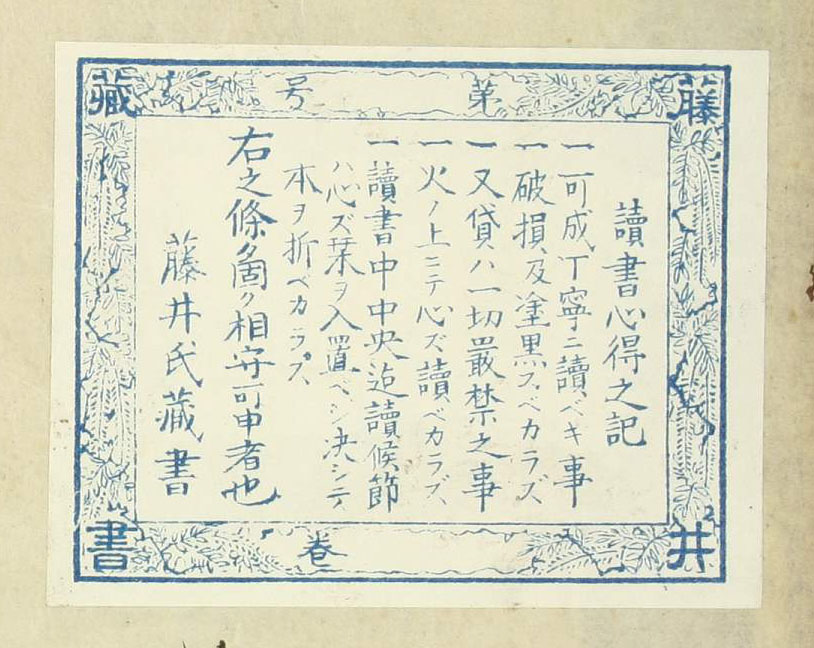 藤井藏書
第 号
卷
讀書心得之記
一可成丁寧ニ讀ベキ事
一破損及塗黒スベカラズ
一又貸ハ一切嚴禁之事
一火ノ上ニテ心ズ讀ベカラズ、
一讀書中中央迄讀候節
ハ心ズ栞ヲ入置ベシ決シテ
本ヲ折ベカラズ、
右之條々箇ク相守可申者也
藤井氏藏書